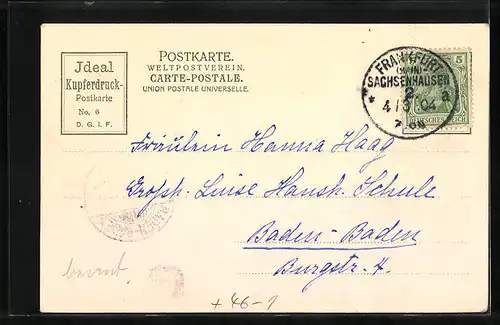 Jdeal
Kupferdruck-
Postkarte
No. 6
D. G. i. F.
POSTKARTE.
WELTPOSTVEREIN.
CARTE-POSTALE.
UNION POSTALE UNIVERSELLE.
FRANKFURT
(MAIN)
SACHSENHAUSEN
2 a
4/5 04
5
DEUTSCHES REICH
Fräulein Hanna Haag
Großh. Luise Haush. Schule
Baden-Baden
Burgstr. 4.
BADEN
+46-1